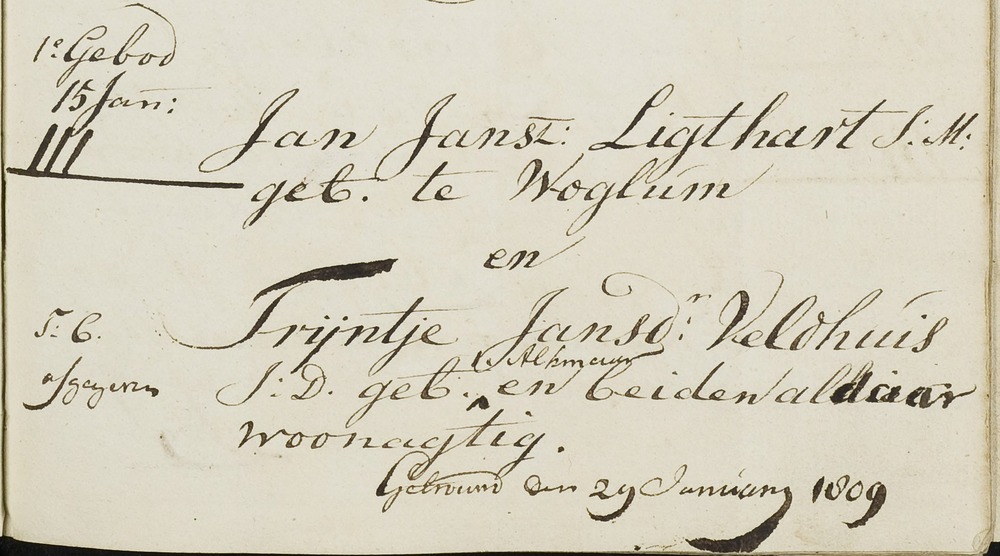 1e Gebod
15 Jan:
III
Jan Jansz: Ligthart J: M:
geb: te Woglum
en
Trijntje Jansdr: Veldhuis
t. Alkmaar
J: D. geb: en beiden aldaar
woonagtig.
Getrouwd den 29 Januarij 1809
T. C.
afgegeven